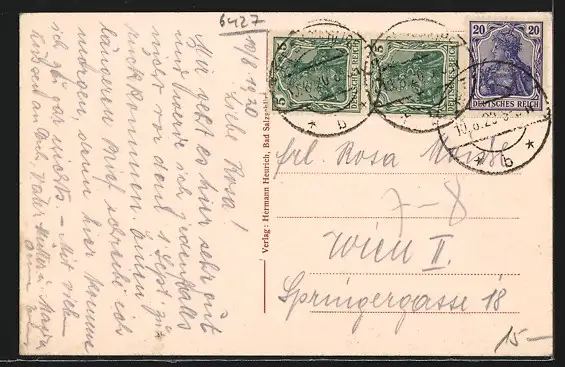 6427
10/8 1920
Liebe Rosa!
Mir geht es hier sehr gut
und werde ich jedenfalls
nicht vor dem 1 Sept. zu
rückkommen. Einen
längeren Brief schreibe ich
morgen, denn hier komme
ich gar nicht. - Mit vielen
Küssen an Dich, Vater Mutter u.
Verlag: Hermann Heurich, Bad Salzschlirf
5
DEUTSCHES REICH
5
DEUTSCHES REICH
20 20
DEUTSCHES REICH
* b *
10.8.20
* b *
Frl. Rosa
7-8
Wien II.
Springergasse 18
15-